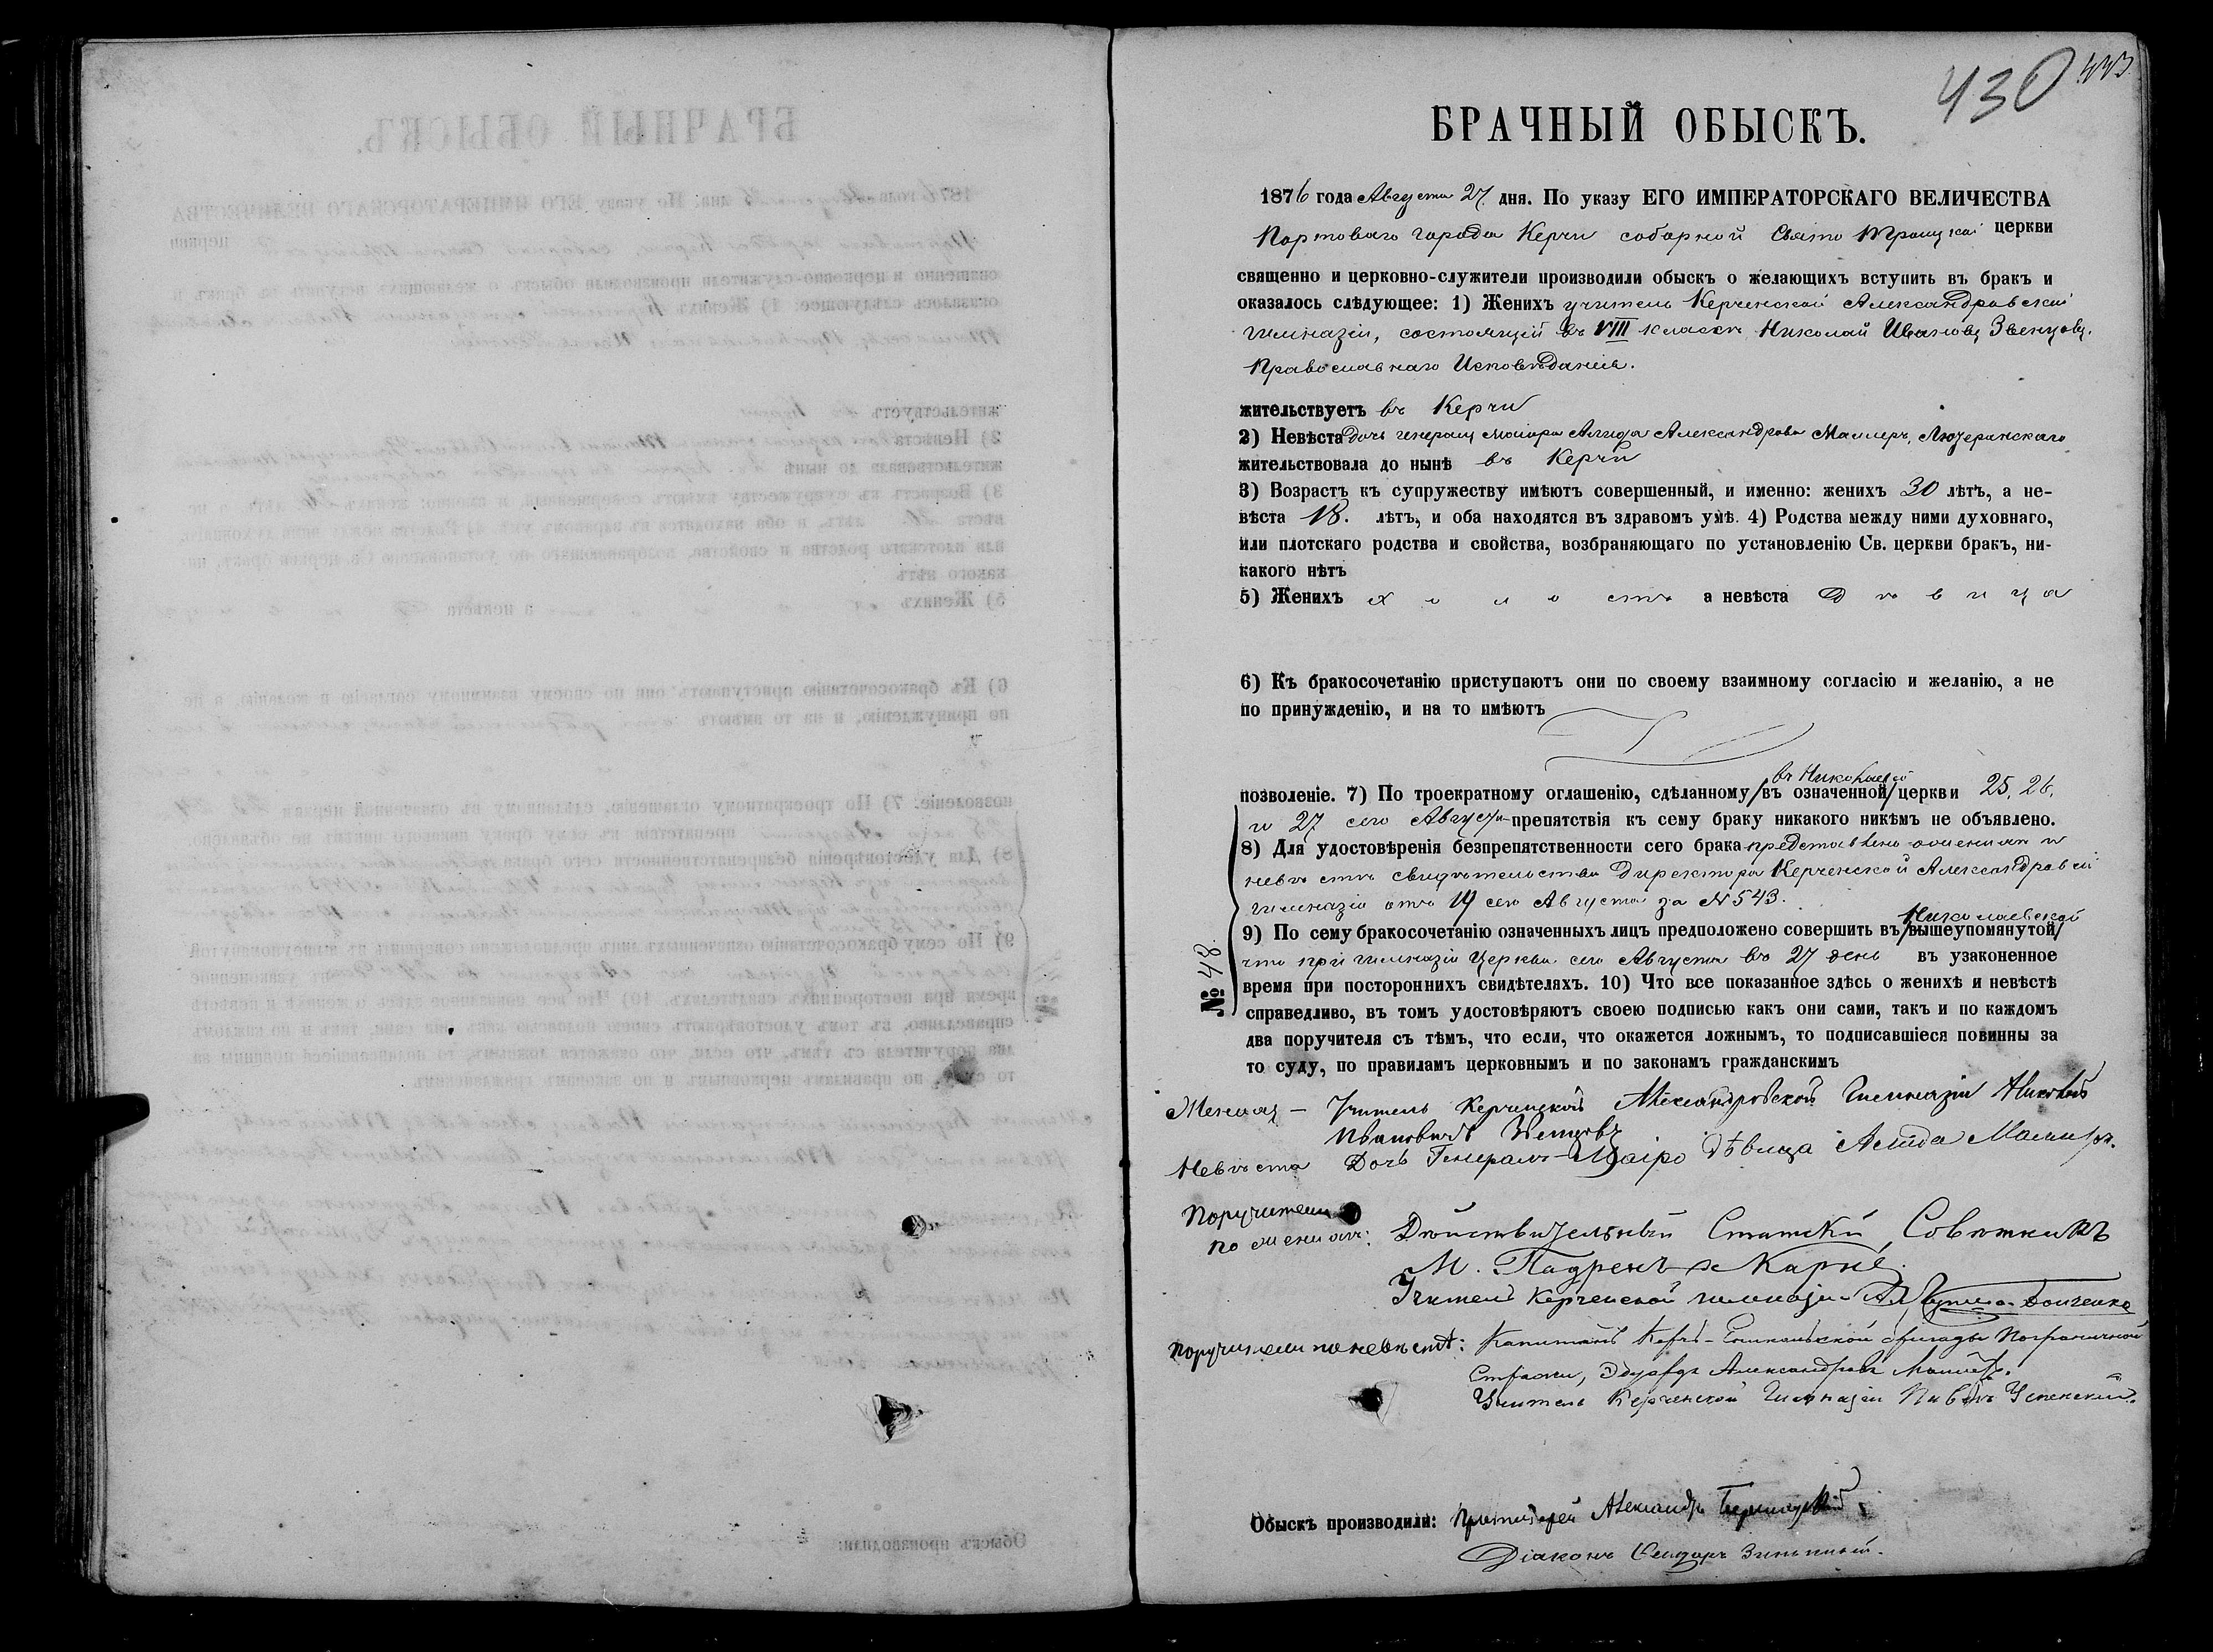 430 443
БРАЧНЫЙ ОБЫСКЪ.
1876 года Августа 27 дня. По указу ЕГО ИМПЕРАТОРСКАГО ВЕЛИЧЕСТВА
Портоваго города Керчи соборной Свято Троицкой церкви
священно и церковно-служители производили обыскъ о желающихъ вступить въ бракъ и
оказалось слѣдующее: 1) Женихъ учитель Керченской Александровской
гимназіи, состоящій въ VIII классѣ Николай Ивановъ Звенцовъ.
Православнаго Исповѣданія.
жительствуетъ въ Керчи
2) Невѣста дочь генералъ маіора Алида Александрова Маллеръ, Лютеранскаго
жительствовала до нынѣ въ Керчи
3) Возрастъ къ супружеству имѣютъ совершенный, и именно: женихъ 30 лѣтъ, а не-
вѣста 18. лѣтъ, и оба находятся въ здравомъ умѣ. 4) Родства между ними духовнаго,
или плотскаго родства и свойства, возбраняющаго по установленію Св. церкви бракъ, ни-
какого нѣтъ
5) Женихъ холостъ а невѣста Дѣвица
6) Къ бракосочетанію приступаютъ они по своему взаимному согласію и желанію, а не
по принужденію, и на то имѣютъ
въ Николаевской
позволеніе. 7) По троекратному оглашенію, сдѣланному /въ означенной/ церкви 25, 26,
и 27 сего Августа препятствія къ сему браку никакого никѣмъ не объявлено.
8) Для удостовѣренія безпрепятственности сего брака представлено женихомъ и
невѣстѣ свидѣтельство Директора Керченской Александровской
гимназіи отъ 19 сего Августа за № 543.
Николаевской
9) По сему бракосочетанію означенныхъ лицъ предположено совершить въ /вышеупомянутой/
что при гимназіи Церкви сего Августа въ 27 день въ узаконенное
время при постороннихъ свидѣтеляхъ. 10) Что все показанное здѣсь о женихѣ и невѣстѣ
справедливо, въ томъ удостовѣряютъ своею подписью какъ они сами, такъ и по каждомъ
два поручителя съ тѣмъ, что если, что окажется ложнымъ, то подписавшіеся повинны за
то суду, по правиламъ церковнымъ и по законамъ гражданскимъ
№ 48.
Женихъ – Учитель Керченской Александровской Гимназіи Николай
Ивановичъ Звенцовъ
Невѣста Дочь Генералъ-Маіора дѣвица Алида Маллеръ.
Поручители
по женихѣ: Дѣйствительный Статскій Совѣтникъ
М. Падренъ де Карне.
Учитель Керченской гимназіи
Поручители по невѣстѣ: Капитанъ Керчь-Еникальской бригады Пограничной
Стражи, Эдуардъ Александровъ Маллеръ.
Учитель Керченской Гимназіи Успенскій.
Обыскъ производили: Протоіерей Александръ
Діаконъ